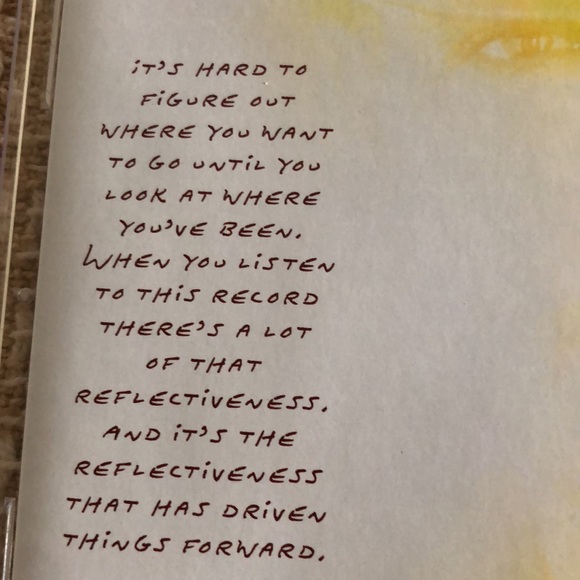 iT'S HARD TO
FiGURE OUT
WHERE YOU WANT
TO GO UNTiL YOU
LOOK AT WHERE
YOU'VE BEEN.
WHEN YOU LiSTEN
TO THiS RECORD
THERE'S A LOT
OF THAT
REFLECTiVENESS.
AND iT'S THE
REFLECTiVENESS
THAT HAS DRiVEN
THiNGS FORWARD.